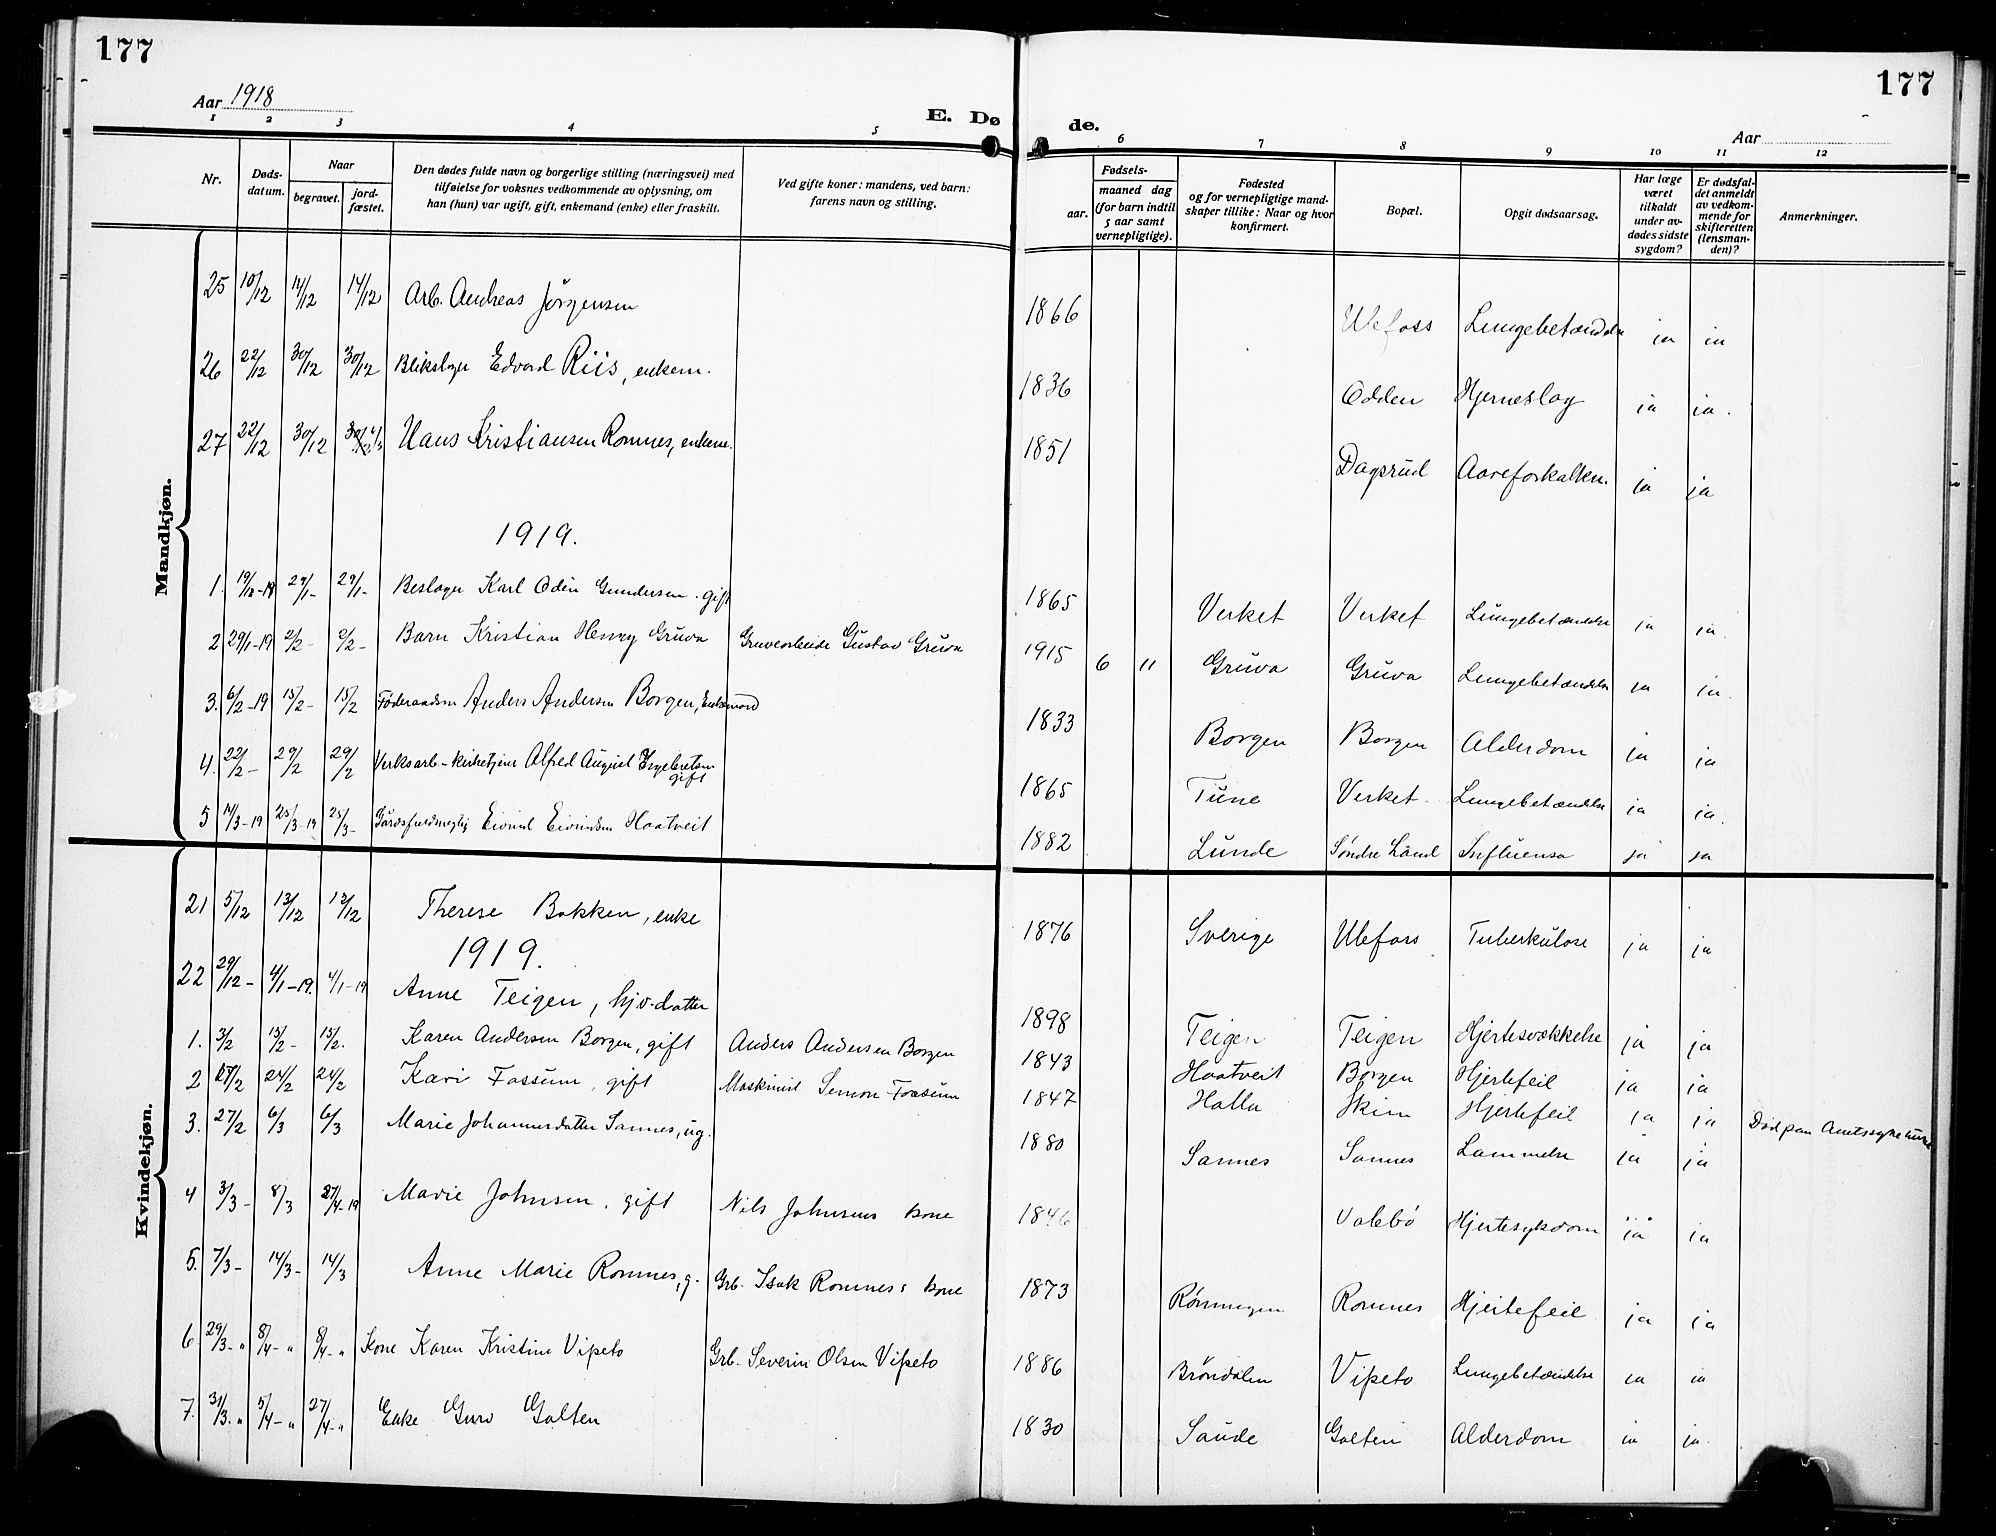 177
177
Aar 1918
E. Dø de.
Aar
1 2 3 4 5 6 7 8 9 10 11 12
Nr.
Døds-
datum.
Naar
begravet.
jord-
fæstet.
Den dødes fulde navn og borgerlige stilling (næringsvei) med
tilføielse for voksnes vedkommende av oplysning, om
han (hun) var ugift, gift, enkemand (enke) eller fraskilt.
Ved gifte koner: mandens, ved barn:
farens navn og stilling.
Fødsels-
aar.
maaned dag
(for barn indtil
5 aar samt
vernepligtige).
Fødested
og for vernepligtige mand-
skaper tillike: Naar og hvor
konfirmert.
Bopæl.
Opgit dødsaarsag.
Har læge
været
tilkaldt
under av-
dødes sidste
sygdom?
Er dødsfal-
det anmeldt
av vedkom-
mende for
skifteretten
(lensman-
den)?
Anmerkninger.
Mandkjøn.
25 10/12 14/12 14/12 Arb. Andreas Jørgensen 1866 Ulefoss Lungebetændelse ja ja
26 22/12 30/12 30/12 Blikslager Edvard Riis, enkem. 1836 Odden Hjerneslag ja ja.
27 22/12 30/12 Hans Kristiansen Romnes, enkem. 1851 Dagsrud Aareforkalkn. ja ja
1919.
1. 29/1- 29/1- Karl Odin Gundersen. gift 1865 Verket Verket Lungebetændelse ja ja.
2 29/1-19 2/2- 2/2- Barn Kristian Henry Gruva Gruvearbeide Gustav Gruva 1915 6 11 Gruva Gruva Lungebetændelse ja ja.
3. 6/2-19 15/2- 15/2 Føderaadsm Anders Andersen Borgen, Enkemand 1833 Borgen Borgen Alderdom ja ja
4. 22/2- 29/2 29/2 Verksarb-kirketjener Alfred August Ingebretsen gift 1865 Tune Verket. Lungebetændelse ja ja.
5 14/3-19 25/3-19 25/3- Eivind Eivindsen Haatveit 1882 Lunde Søndre Land Influensa ja ja
Kvindekjøn.
21 5/12 13/12 13/12 Therese Bakken, enke 1876 Sverige Ulefoss Tuberkulose ja ja
1919.
22 29/12- 4/1-19. 4/1-19 Anne Teigen, hjv.datter 1898 Teigen Teigen Hjertesvækkelse ja ja
1. 3/2 15/2- 15/2. Karen Andersen Borgen, gift Anders Andersen Borgen 1843 Haatveit Borgen Hjertefeil ja ja
2 24/2 24/2 Kari Fossum, gift Maskinist Simon Fossum 1847 Holla Skim Hjertefeil ja ja
3. 27/2 6/3 6/3 Marie Johannesdatter Sannes, ug. 1880 Sannes Sannes Lammelse ja ja Død paa Amtssykehuset
4 3/3- 8/3 27/4-19 Marie Johnsen, gift Nils Johnsens kone 1846 Valebø Hjertesykdom ja ja
5. 7/3- 14/3- 14/3 Anne Marie Romnes, g. Grb. Isak Romnes's kone 1873 Rønningen Romnes Hjertefeil ja ja
6 29/3-" 8/4-" 8/4-" Kone Karen Kristine Vipeto Grb. Severin Olsen Vipeto 1886 Brøndalen Vipeto Lungebetændelse ja ja
7. 31/3." 5/4-" 27/4-" Enke Guro Galten 1830 Saude Galten Alderdom ja ja.